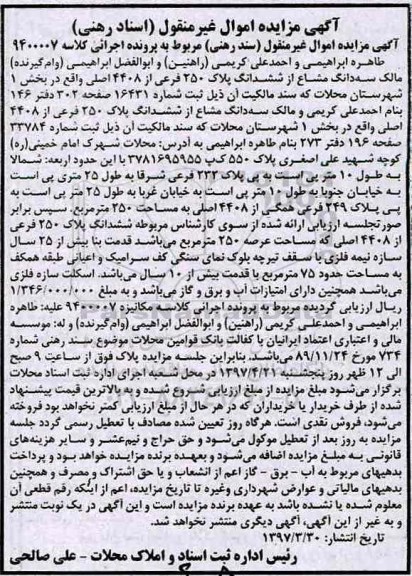 آگهی مزایده اموال غیرمنقول (اسناد رهنی)
آگهی مزایده اموال غیرمنقول (سند رهنی) مربوط به پرونده اجرائی کلاسه ۹۴۰۰۰۰۷
طاهره ابراهیمی و احمدعلی کریمی (راهنین) و ابوالفضل ابراهیمی (وام‌گیرنده)
مالک سه‌دانگ مشاع از ششدانگ پلاک ۲۵۰ فرعی از ۴۴۰۸ اصلی واقع در بخش ۱
شهرستان محلات که سند مالکیت آن ذیل ثبت شماره ۱۶۴۳۱ صفحه ۳۰۲ دفتر ۱۴۶
بنام احمدعلی کریمی و مالک سه‌دانگ مشاع از ششدانگ پلاک ۲۵۰ فرعی از ۴۴۰۸
اصلی واقع در بخش ۱ شهرستان محلات که سند مالکیت آن ذیل ثبت شماره ۳۳۷۸۴
صفحه ۱۹۶ دفتر ۲۷۳ بنام طاهره ابراهیمی به آدرس: محلات شهرک امام خمینی(ره)
کوچه شهید علی اصغری پلاک ۵۵۰ ک‌پ ۳۷۸۱۶۹۵۹۵۵ با این حدود اربعه: شمالا
به طول ۱۰ متر پی است به پی پلاک ۲۳۲ فرعی شرقا به طول ۲۵ متری پی است
به خیابان جنوبا به طول ۱۰ متر پی است به خیابان غربا به طول ۲۵ متر پی است به
پی پلاک ۲۴۹ فرعی همگی از ۴۴۰۸ اصلی به مساحت ۲۵۰ مترمربع. سپس برابر
صورتجلسه ارزیابی ارائه شده از سوی کارشناس مربوطه ششدانگ پلاک ۲۵۰ فرعی
از ۴۴۰۸ اصلی به مساحت عرصه ۲۵۰ مترمربع می‌باشد قدمت بنا بیش از ۲۵ سال
سازه نیمه فلزی با سقف تیرچه بلوک نمای سنگی کف سرامیک و اعیانی طبقه همکف
به مساحت حدود ۷۵ مترمربع با قدمت بیش از ۱۰ سال می‌باشد. اسکلت سازه فلزی
می‌باشد همچنین دارای امتیازات آب و برق و گاز می‌باشد و به مبلغ ۱/۳۴۶/۰۰۰/۰۰۰
ریال ارزیابی گردیده مربوط به پرونده اجرائی کلاسه مکانیزه ۹۴۰۰۰۰۷ علیه: طاهره
ابراهیمی و احمدعلی کریمی (راهنین) و ابوالفضل ابراهیمی (وام‌گیرنده) و له: موسسه
مالی و اعتباری اعتماد ایرانیان با کفالت بانک قوامین محلات موضوع سند رهنی شماره
۷۳۴ مورخ ۸۹/۱۱/۲۴ می‌باشند. بنابراین جلسه مزایده پلاک فوق از ساعت ۹ صبح
الی ۱۲ ظهر روز پنجشنبه ۱۳۹۷/۴/۲۱ در محل شعبه اجرای اداره ثبت اسناد محلات
برگزار می‌شود مبلغ مزایده از مبلغ ارزیابی شروع شده و به بالاترین قیمت پیشنهاد
شده از طرف خریدار یا خریداران که در هر حال از مبلغ ارزیابی کمتر نخواهد بود فروخته
می‌شود، فروش نقدی است. هرگاه روز تعیین شده مصادف با تعطیل رسمی گردد جلسه
مزایده به روز بعد از تعطیل موکول می‌شود و حق حراج و نیم‌عشر و سایر هزینه‌های
قانونی به مبلغ مزایده اضافه می‌شود و بعهده برنده مزایده خواهد بود و پرداخت
بدهیهای مربوط به آب – برق – گاز اعم از انشعاب و یا حق اشتراک و مصرف و همچنین
بدهیهای مالیاتی و عوارض شهرداری وغیره تا تاریخ مزایده، اعم از اینکه رقم قطعی آن
معلوم شده یا نشده باشد به عهده برنده مزایده است و این آگهی در یک نوبت منتشر
و به غیر از این آگهی، آگهی دیگری منتشر نخواهد شد.
تاریخ انتشار: ۱۳۹۷/۳/۳۰
رئیس اداره ثبت اسناد و املاک محلات – علی صالحی